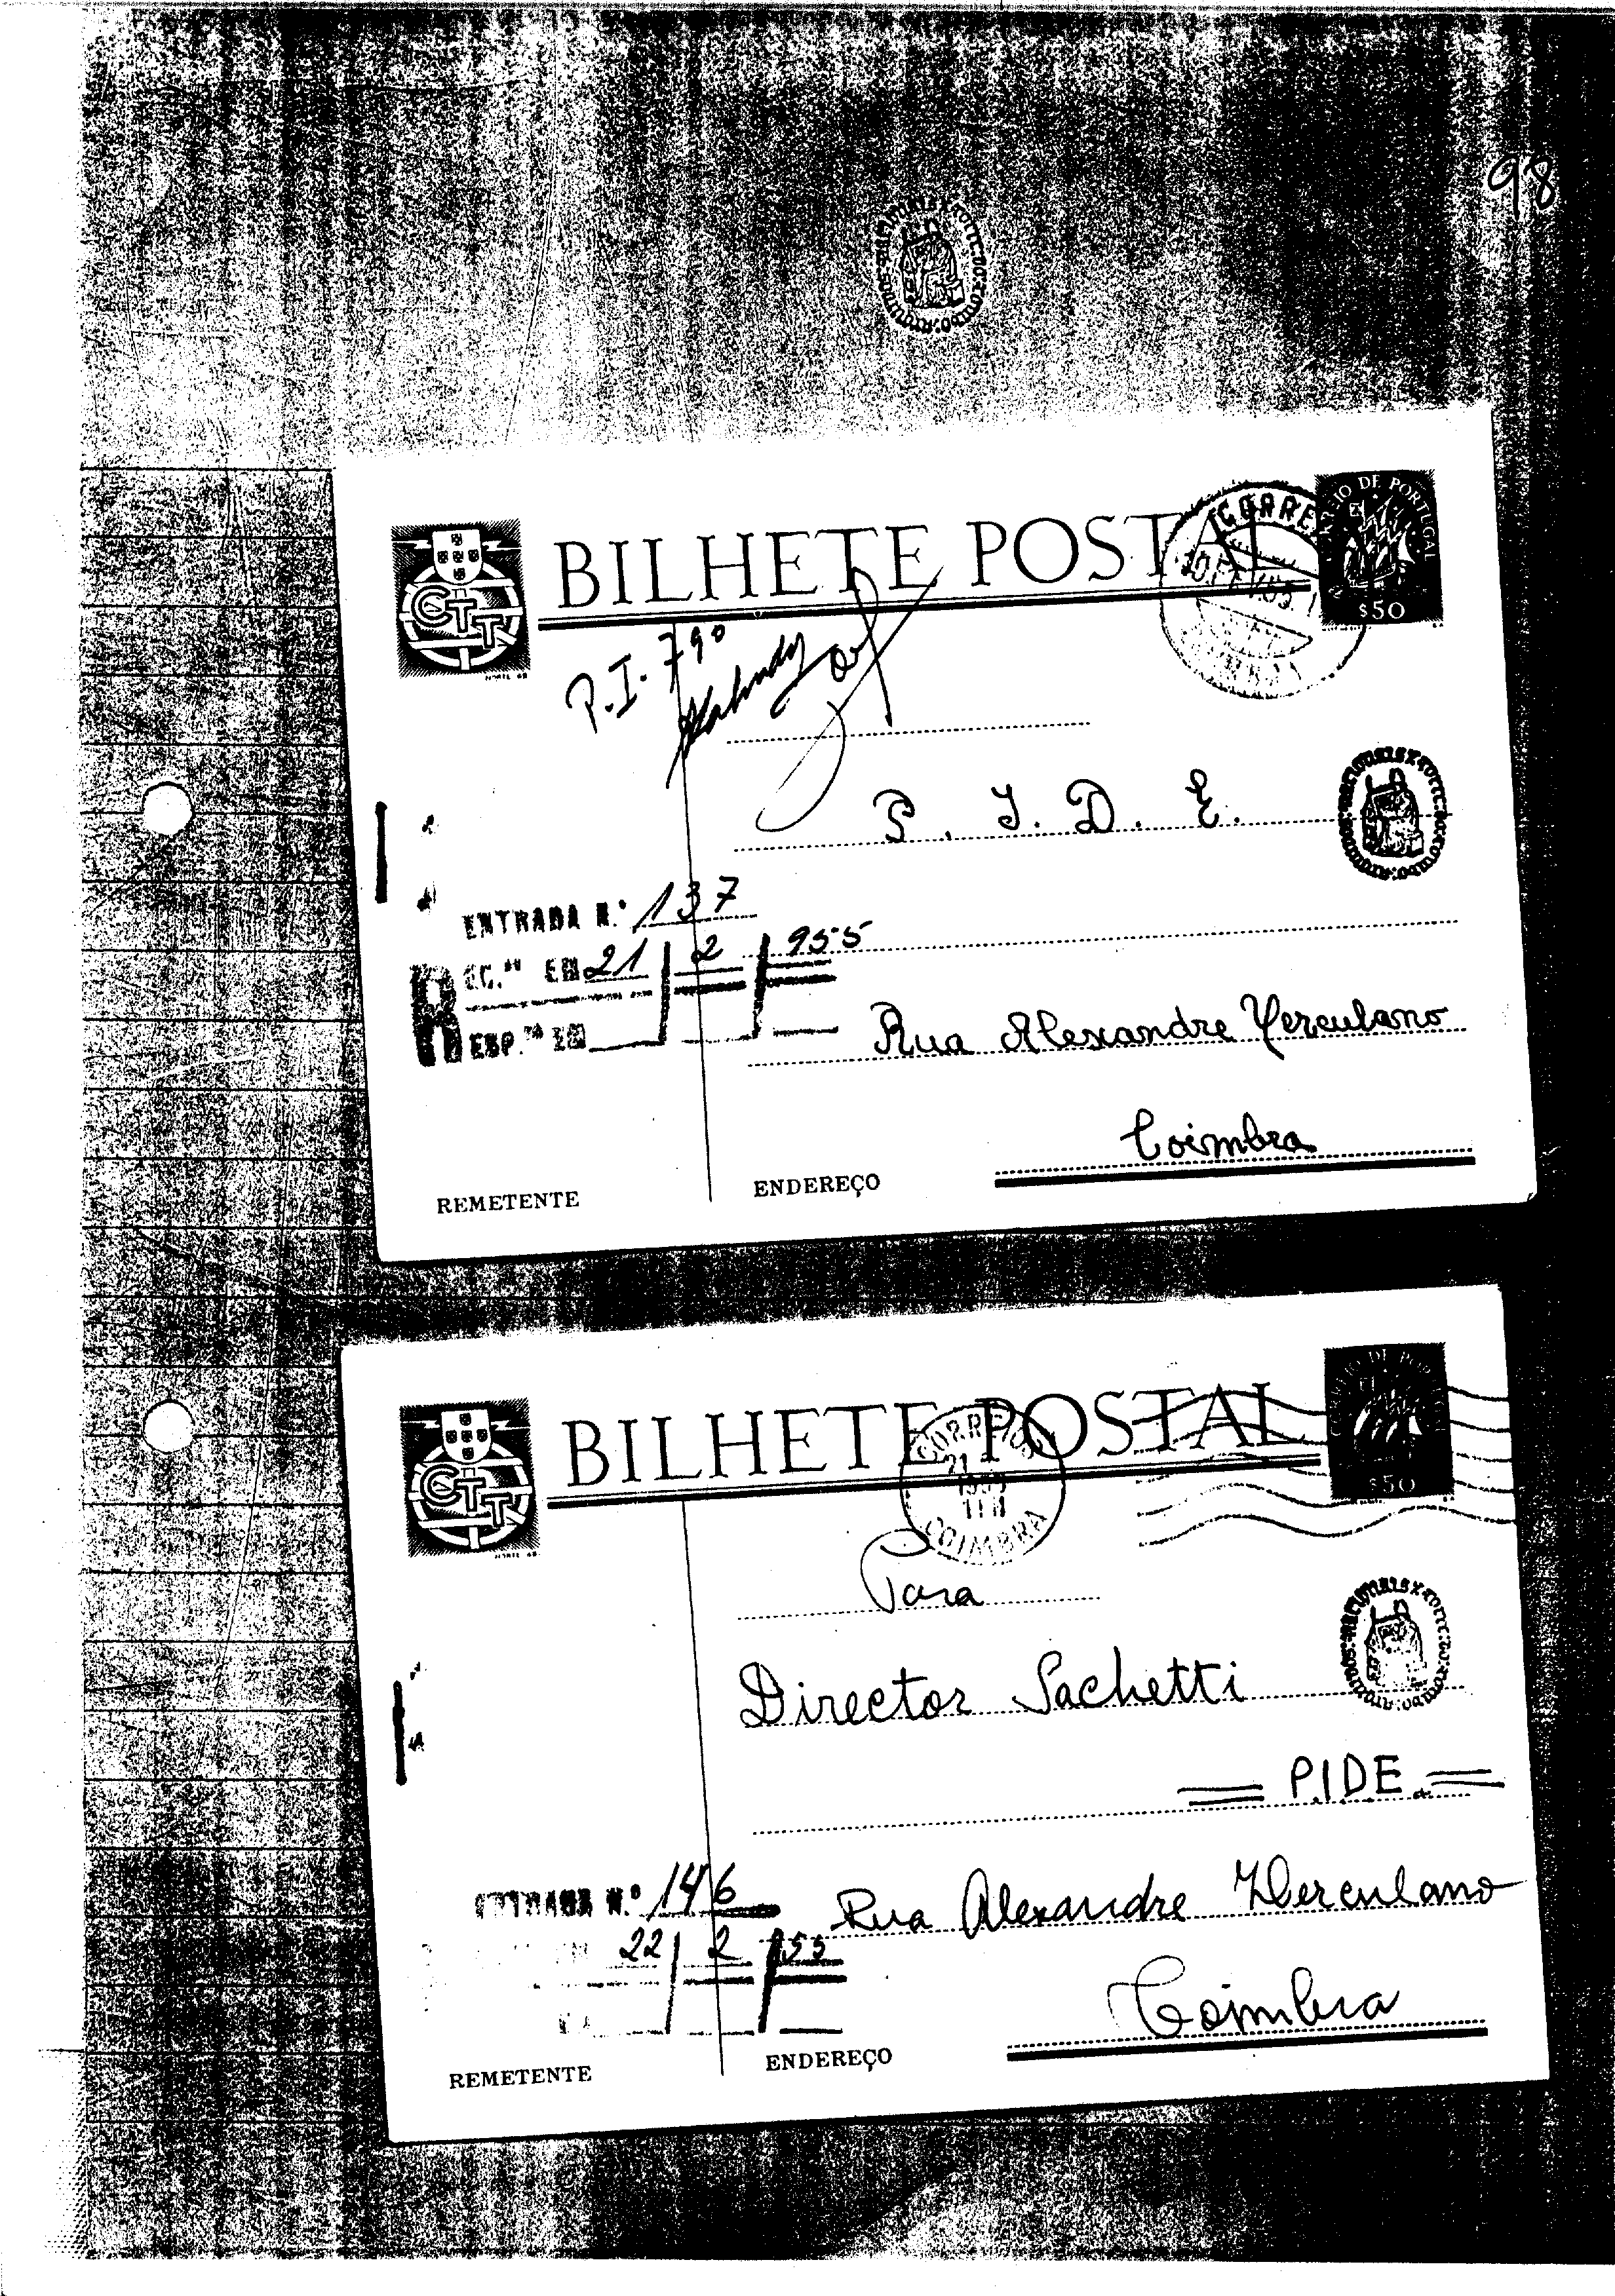 98
BILHETE POSTAL
CTT
CORREIO DE PORTUGAL
$50
P.I. 790
P. I. D. E.
ENTRADA N.º 137
REC.º EM 21 / 2 / 955
RESP.º EM
Rua Alexandre Herculano
Coimbra
REMETENTE
ENDEREÇO
BILHETE POSTAL
CTT
$50
CORREIOS
21
COIMBRA
Para
Director Sachetti
P.IDE.
ENTRADA N.º 146
22 / 2 / 55
Rua Alexandre Herculano
Coimbra
REMETENTE
ENDEREÇO